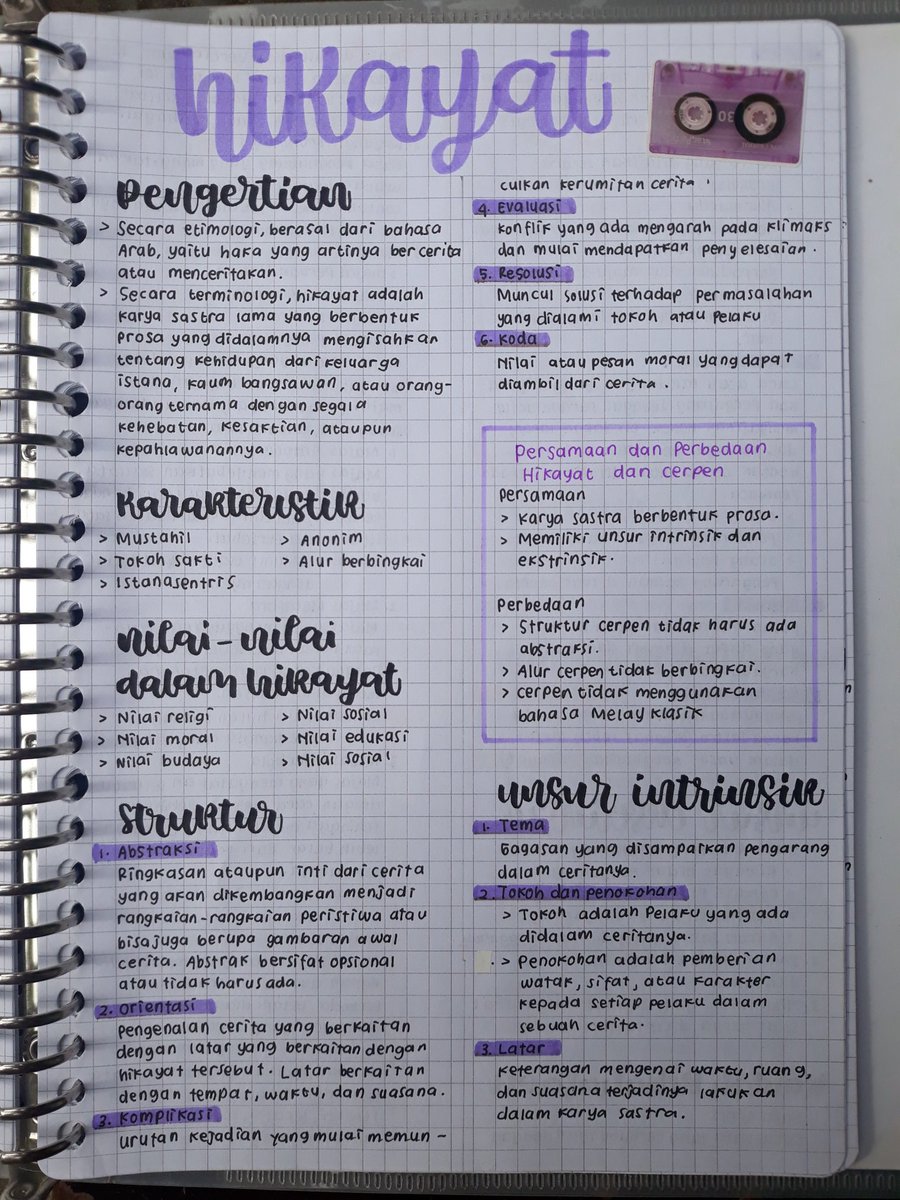 hikayat
30
Pengertian
> Secara etimologi, berasal dari bahasa
Arab, yaitu haka yang artinya bercerita
atau menceritakan.
> Secara terminologi, hikayat adalah
karya sastra lama yang berbentuk
prosa yang didalamnya mengisahkan
tentang kehidupan dari keluarga
istana, kaum bangsawan, atau orang-
orang ternama dengan segala
kehebatan, kesaktian, ataupun
kepahlawanannya.
Karakteristik
> Mustahil
> Tokoh sakti
> Istanasentris
> Anonim
> Alur berbingkai
nilai-nilai
dalam hikayat
> Nilai religi
> Nilai moral
> Nilai budaya
> Nilai sosial
> Nilai edukasi
> Nilai sosial
Struktur
1. Abstraksi
Ringkasan ataupun inti dari cerita
yang akan dikembangkan menjadi
rangkaian-rangkaian peristiwa atau
bisa juga berupa gambaran awal
cerita. Abstrak bersifat opsional
atau tidak harus ada.
2. Orientasi
Pengenalan cerita yang berkaitan
dengan latar yang berkaitan dengan
hikayat tersebut. Latar berkaitan
dengan tempat, waktu, dan suasana.
3. Komplikasi
Urutan kejadian yang mulai memun-
culkan kerumitan cerita.
4. Evaluasi
Konflik yang ada mengarah pada klimaks
dan mulai mendapatkan penyelesaian.
5. Resolusi
Muncul solusi terhadap permasalahan
yang dialami tokoh atau pelaku
6. Koda
Nilai atau pesan moral yang dapat
diambil dari cerita.
Persamaan dan Perbedaan
Hikayat dan cerpen
Persamaan
> Karya sastra berbentuk prosa.
> Memiliki unsur intrinsik dan
ekstrinsik.
Perbedaan
> Struktur cerpen tidak harus ada
abstraksi.
> Alur cerpen tidak berbingkai.
> cerpen tidak menggunakan
bahasa Melay Klasik
unsur intrinsik
1. Tema
Gagasan yang disampaikan pengarang
dalam ceritanya.
2. Tokoh dan penokohan
> Tokoh adalah Pelaku yang ada
didalam ceritanya.
> Penokohan adalah pemberian
watak, sifat, atau karakter
kepada setiap pelaku dalam
sebuah cerita.
3. Latar
Keterangan mengenai waktu, ruang,
dan suasana terjadinya lakukan
dalam karya sastra.